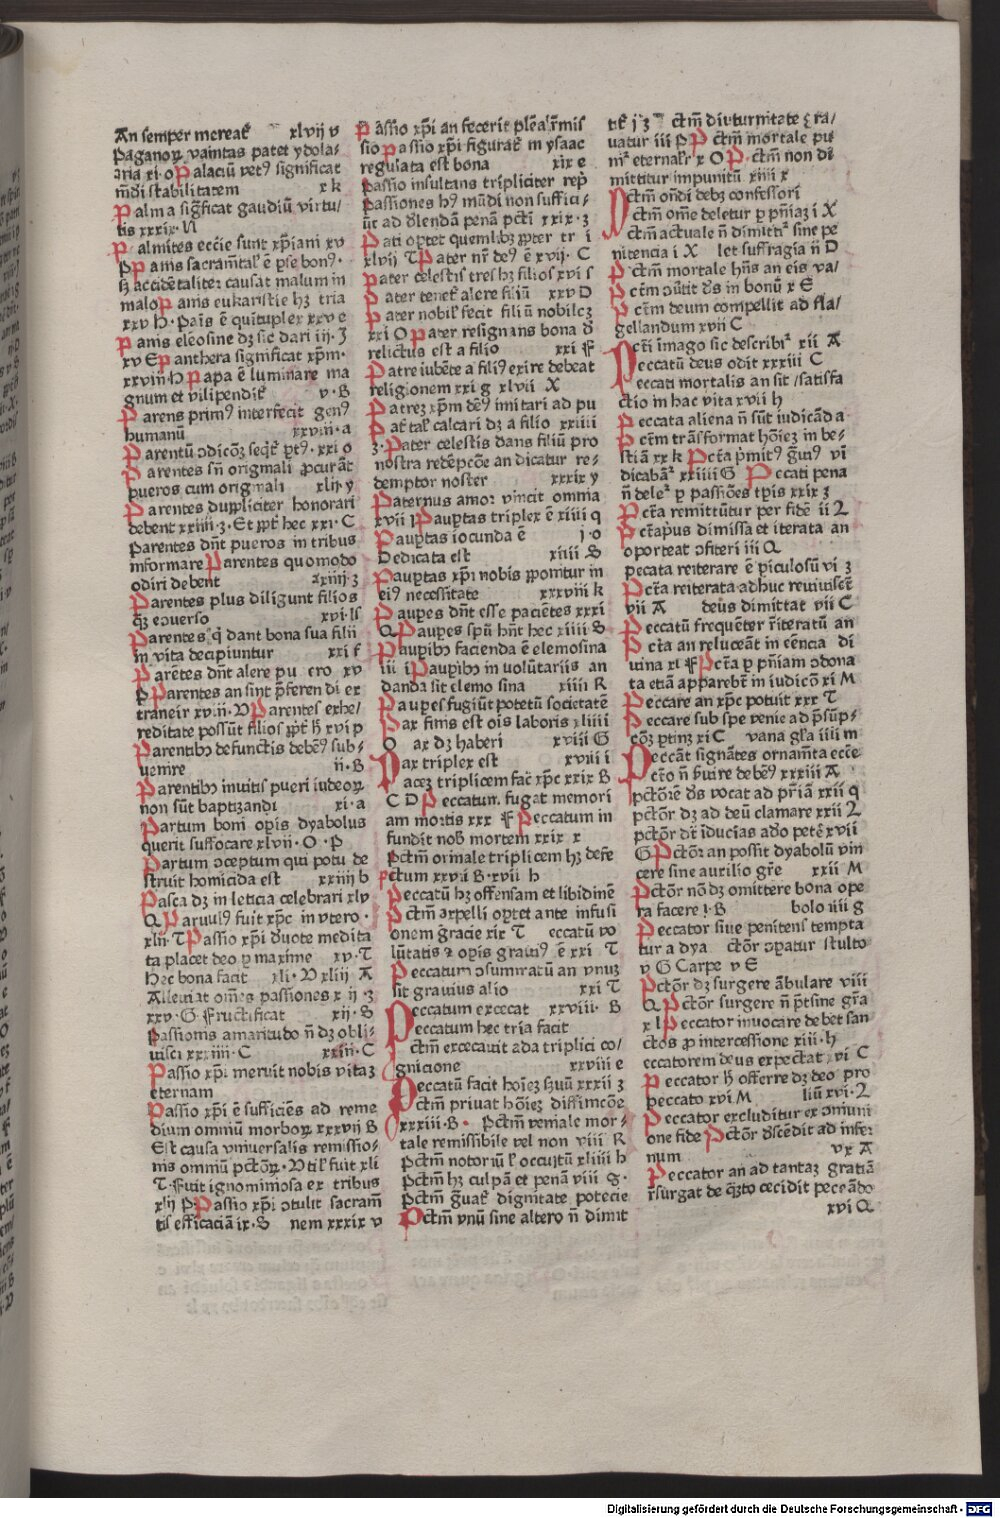 An semper mereat᷑ xlvij v
Paganoꝝ vanitas patet ydola-
tria xi·o Palaciū vetꝰ significat
mūdi stabilitatem x k
Palma siḡficat gaudiū virtu/
tis xxxix·N
Palmites eccīe sunt xp̄iani xv
P Panis sacram̄tal᷑ ē ꝑse bonꝰ·
ſꝫ accidētaliter causat malum in
malo Panis eukaristie hꝫ tria
xxv H· Panis ē quītuplex xxv e
Panis eleōsine dꝫ sic dari iij· Z
xv E Panthera significat xp̄m·
xxviii H Papa ē luminare ma
gnum et vilipendit᷑ v·B
Parens primꝰ interfecit genꝰ
humanū xxviii·a
Parentū ꝯdicōꝫ seq̄t᷑ ꝑtꝰ· xxi o
Parentes sn̄ originali ꝓcurāt
pueros cum originali xlij y
Parentes dupliciter honorari
debent xxiiii·3· Et ꝓpt᷑ hec xxi·C
Parentes dn̄t pueros in tribus
informare Parentes quomodo
odiri debent xxiiij 3
Parentes plus diligunt filios
q̄ꝫ eꝯuerso xvi·N
Parentes q̄ dant bona sua filii
in vita decipiuntur xxi f
Parētes dn̄t alere pu ero xv
P Parentes an sint p̄feren di ex
traneis xvii·V Parentes exhe/
reditate possūt filios ꝓpt᷑ h̄ xvi p
Parentibꝫ defunctis debēꝰ sub-
uenire ii·B
Parentibꝫ inuitis pueri iudeoꝝ
non sūt baptizandi xi·a
Partum boni oꝑis dyabolus
querit suffocare xlvii·O·P
Partum ꝯceptum qui potu de
struit homicida est xxiiij b
Pasca dꝫ in leticia celebrari xlv
Q Paruulꝰ fuit xp̄c in vtero·
xlii·T Passio xp̄i d̄uote medita
ta placet deo ꝑ maxime xv·T
Hec bona facit xli·V xliij A
Alleuiat om̄es passiones x ij 3
xxv·G Fructificat xij·S
Passionis amaritudo n̄ dꝫ obli-
uisci xxxiiii·C xxiii·C
Passio xp̄i meruit nobis vitaꝫ
eternam
Passio xp̄i ē sufficiēs ad reme
dium omniū morboꝝ xxxvij B
Est causa vniuersalis remissio-
nis omniū pctōꝝ· Vtil᷑ fuit xli
T·Fuit ignominiosa ex tribus
xlij P Passio xp̄i ꝯtulit sacram̄
tis efficaciā ix·S nem xxxix v
Passio xp̄i an fecerit plēa r̄mis
sio Passio xp̄i figurat᷑ in ysaac
regulata est bona xix e
Passio insultans tripliciter rep̄
Passiones hꝰ mūdi non suffici-
ūt ad d̄lendā penā pctī xxix·3
Pati oꝑtet quemlibꝫ ꝓpter tr i
xlvij T Pater nr̄ deꝰ ē xvij· C
Pater celestis tres hꝫ filios xvi s
Pater tenet᷑ alere filiū xxv D
Pater nobil᷑ fecit filiū nobileꝫ
xxi O Pater resignans bona d̄
relictus est a filio xxi F
Patre iubēte a filiꝰ exire debeat
religionem xxi g xlvij X
Patreꝫ xp̄m deꝰ imitari ad pu
Pat᷑ tal᷑ calcari dꝫ a filio xxiiii
3· Pater celestis dans filiū pro
nostra redēpcōe an dicatur re-
demptor noster xxxix y
Paternus amor vincit omnia
xvij i Pauꝑtas triplex ē xiiii q
Pauꝑtas iocunda ē i·o
Dedicata est xiiii S
Pauꝑtas xp̄i nobis ꝓponitur in
eiꝰ necessitate xxxviii k
Pauꝑes dn̄t esse paciētes xxxi
Q Pauꝑes spū hn̄t hec xiiii S
Pauꝑibꝫ facienda ē elemosina
iii i Pauꝑibꝫ in volūtariis an
danda sit elemo sina xiiii R
Pauꝑes fugiūt potētū societatē
Pax finis est oīs laboris xliiii
O ax dꝫ haberi xviii G
Pax triplex est xviii i
Paceꝫ triplicem fac̄ xp̄c xxix B
C D Peccatum fugat memori
am mortis xxx F Peccatum in
fundit nob᷑ mortem xxix x
Pctm̄ orīnale triplicem hꝫ defe
ctum xxvii B·xvii h
Peccatū hꝫ offensam et libidinē
Pctm̄ ꝯrpelli oꝑtet ante infusi
onem gracie xix T eccatū vo
lūtatis ⁊ oꝑis grauiꝰ ē xxi T
Peccatum ꝯsummatū an vnuꝫ
sit grauius alio xxi T
Peccatum excecat xxviii· B
Peccatum hec tria facit
Pctm̄ excecauit ada triplici co/
gnicione xxviii e
Peccatū facit hoīeꝫ s̄uū xxxii 3
Pctm̄ priuat hōieꝫ diffimcōe
xxxiii·B· Pctm̄ veniale mor-
tale remissibile vel non viii R
Pctm̄ notoriū ł occultū xliiii h
Pctm̄ hꝫ culpā et penā viii g·
Pctm̄ ḡuat᷑ dignitate potēcie
Pctm̄ vnū sine altero n̄ dimit
tit᷑ j 3 ctm̄ diuturnitate ḡra/
uatur iii P Pctm̄ mortale pu
nit᷑ eternalr̄ x O Pctm̄ non di
mittitur impunitū xiiii x
Pctm̄ on̄di debꝫ confessori
Pctm̄ om̄e deletur ꝑ pn̄iaꝫ i X
Pctm̄ actuale n̄ dimittit᷑ sine pe
nitencia i X let suffragia n̄ D
Pctm̄ mortale hn̄s an eis va/
Pctēm ꝯūtit d̄s in bonū x E
Pctēm deum compellit ad fla/
gellandum xvii C
Pcti imago sic describit᷑ xii A
Peccatū deus odit xxxiii C
Peccati mortalis an sit satisfa
ctio in hac vita xvii h
Peccata aliena n̄ sūt iudicāda
Pctēm trāsformat hōieꝫ in be-
stiā xx k Pctā p̄mitꝰ ḡuiꝰ vi
dicabāt᷑ xxiiii G Peccati pena
n̄ deletꝰ ꝑ passiōes tꝑis xxix 3
Pctā remittūtur per fidē ii L
Pctā priꝰ dimissa et iterata an
oporteat ꝯfiteri iii Q
pecata reiterare ē ꝑiculosū vi 3
Pctā reiterata adhuc reuiuiscēt
vii A deus dimittat vii C
Peccatū frequēter r̄iteratū an
Pctā an reluceāt in eēncia di
uina xl F Pctā ꝑ pn̄iam ꝯdona
ta etiā apparebūt in iudicō xi M
Peccare an xp̄c potuit xxx T
Peccare sub spe venie ad p̄sūp-
cōꝫ ꝑtinꝫ xi C vana gła iiii m
Peccāt signātes ornam̄ta ecc̄e
Pctō n̄ s̄uire debēꝰ xxxiii A
pctōrē d̄s vocat ad pn̄iā xxii q
pctōr dꝫ ad deū clamare xxii L
pctōr dt᷑ iducias ad̄o petē xvii
G Pctōr an possit dyabolū vin
cere sine auxilio gr̄e xxii M
Pctōr nō dꝫ omittere bona ope
ra facere i·B bolo iiii g
Peccator siue penitens tempta
tur a dya ctōr ꝯꝑatur stulto
v G Carpe v E
Pctōr dꝫ surgere ābulare viii
Q Pctōr surgere n̄ p̄t sine gr̄a
x l Peccator inuocare debet san
ctos ꝓ intercessione xiii·h
eccatorem deus expectat xvi C
Peccator h̄ offerre dꝫ deo pro
peccato xvi M liū xvi·L
Peccator excluditur ex ꝯmuni
one fide Pctōr d̄scēdit ad infer
num vx A
Peccator an ad tantaꝫ gratiā
r̄surgat de q̄ꝫto cecidit peccādo
xvi Q
Digitalisierung gefördert durch die Deutsche Forschungsgemeinschaft - DFG